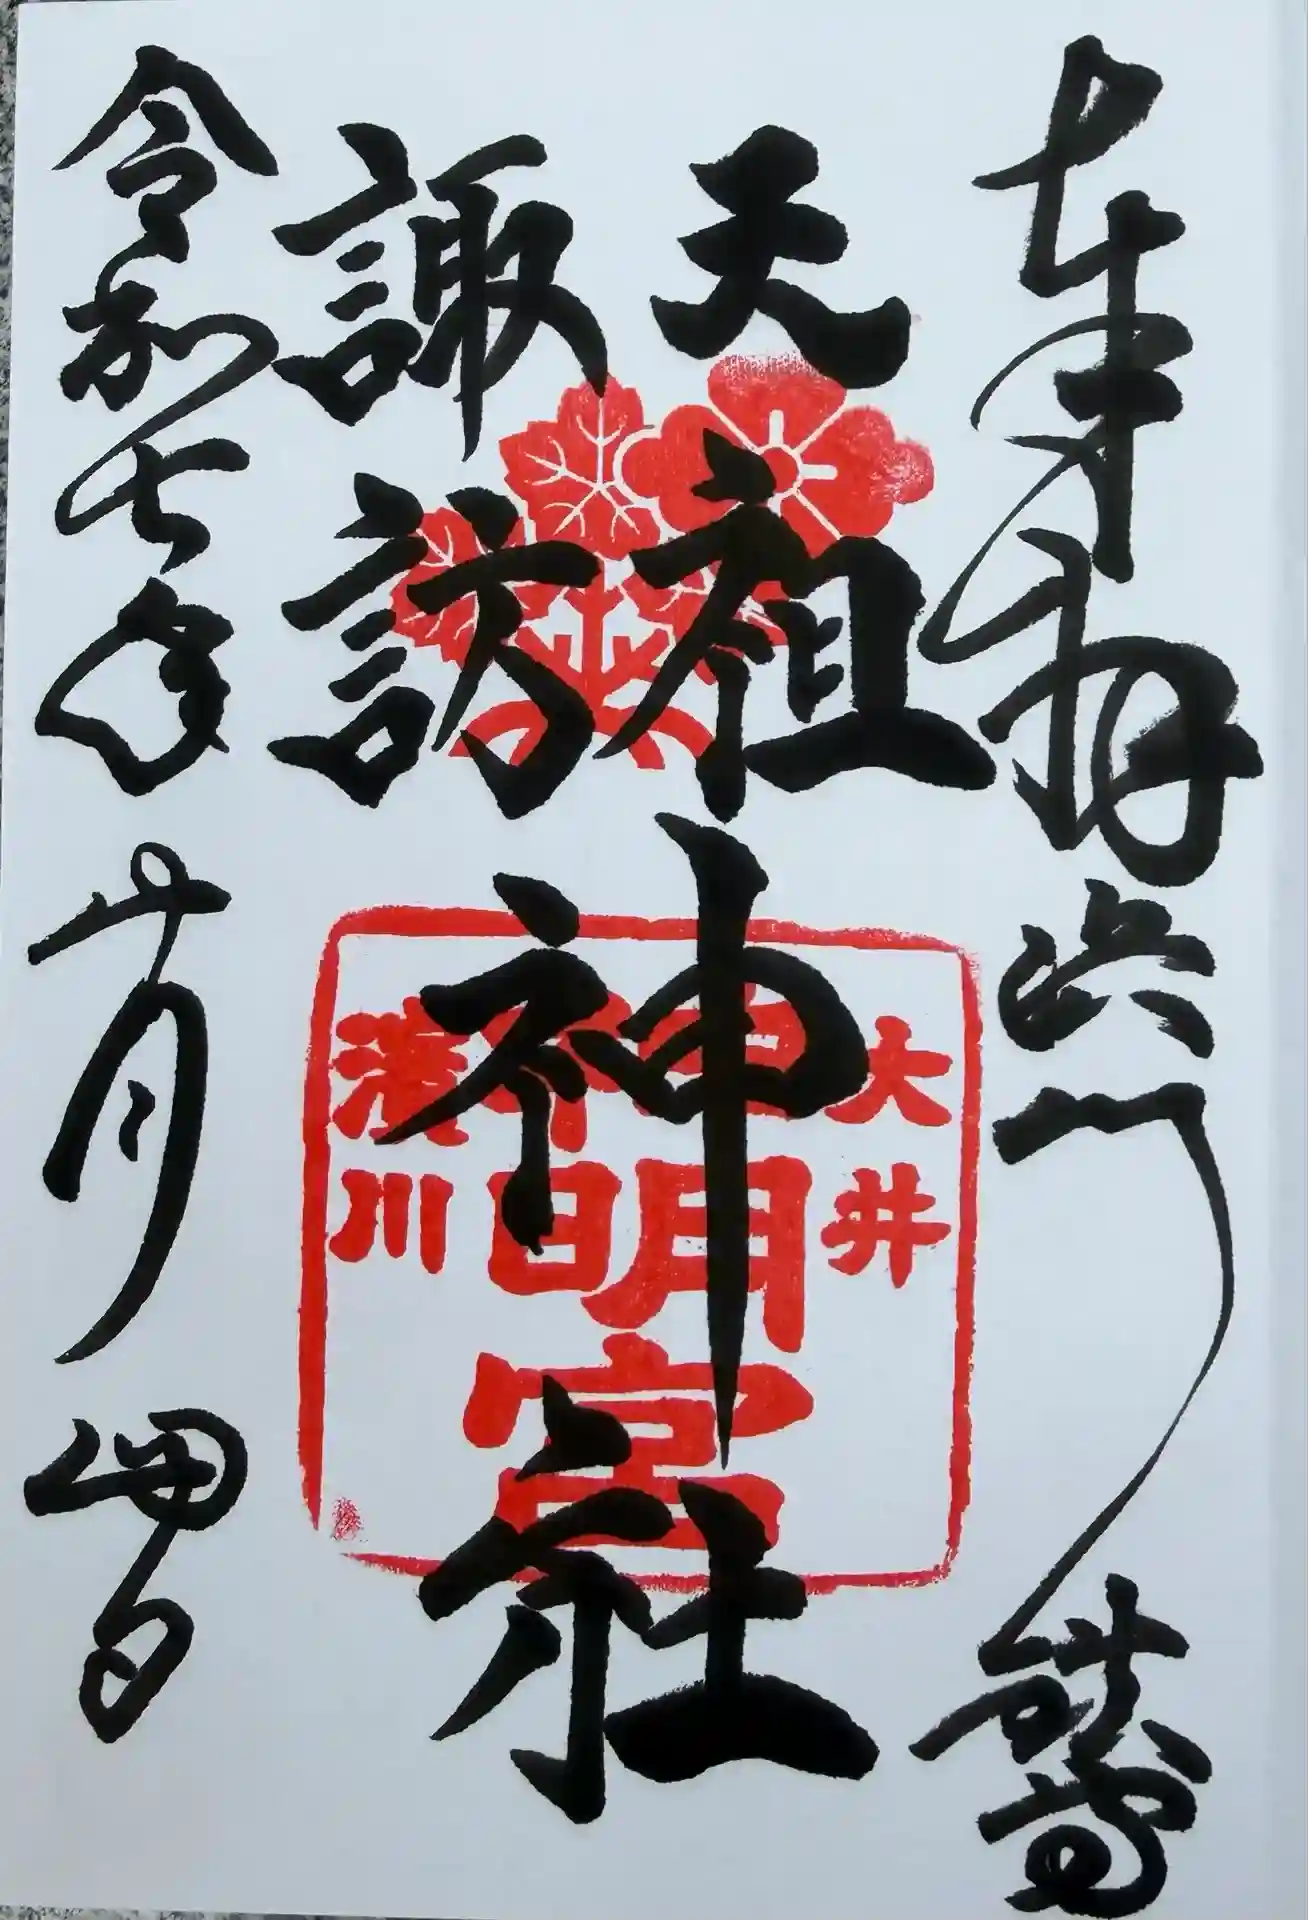 奉拝浜川
天祖神社
諏訪
令和七年 月四日
大井
神明宮
濱川